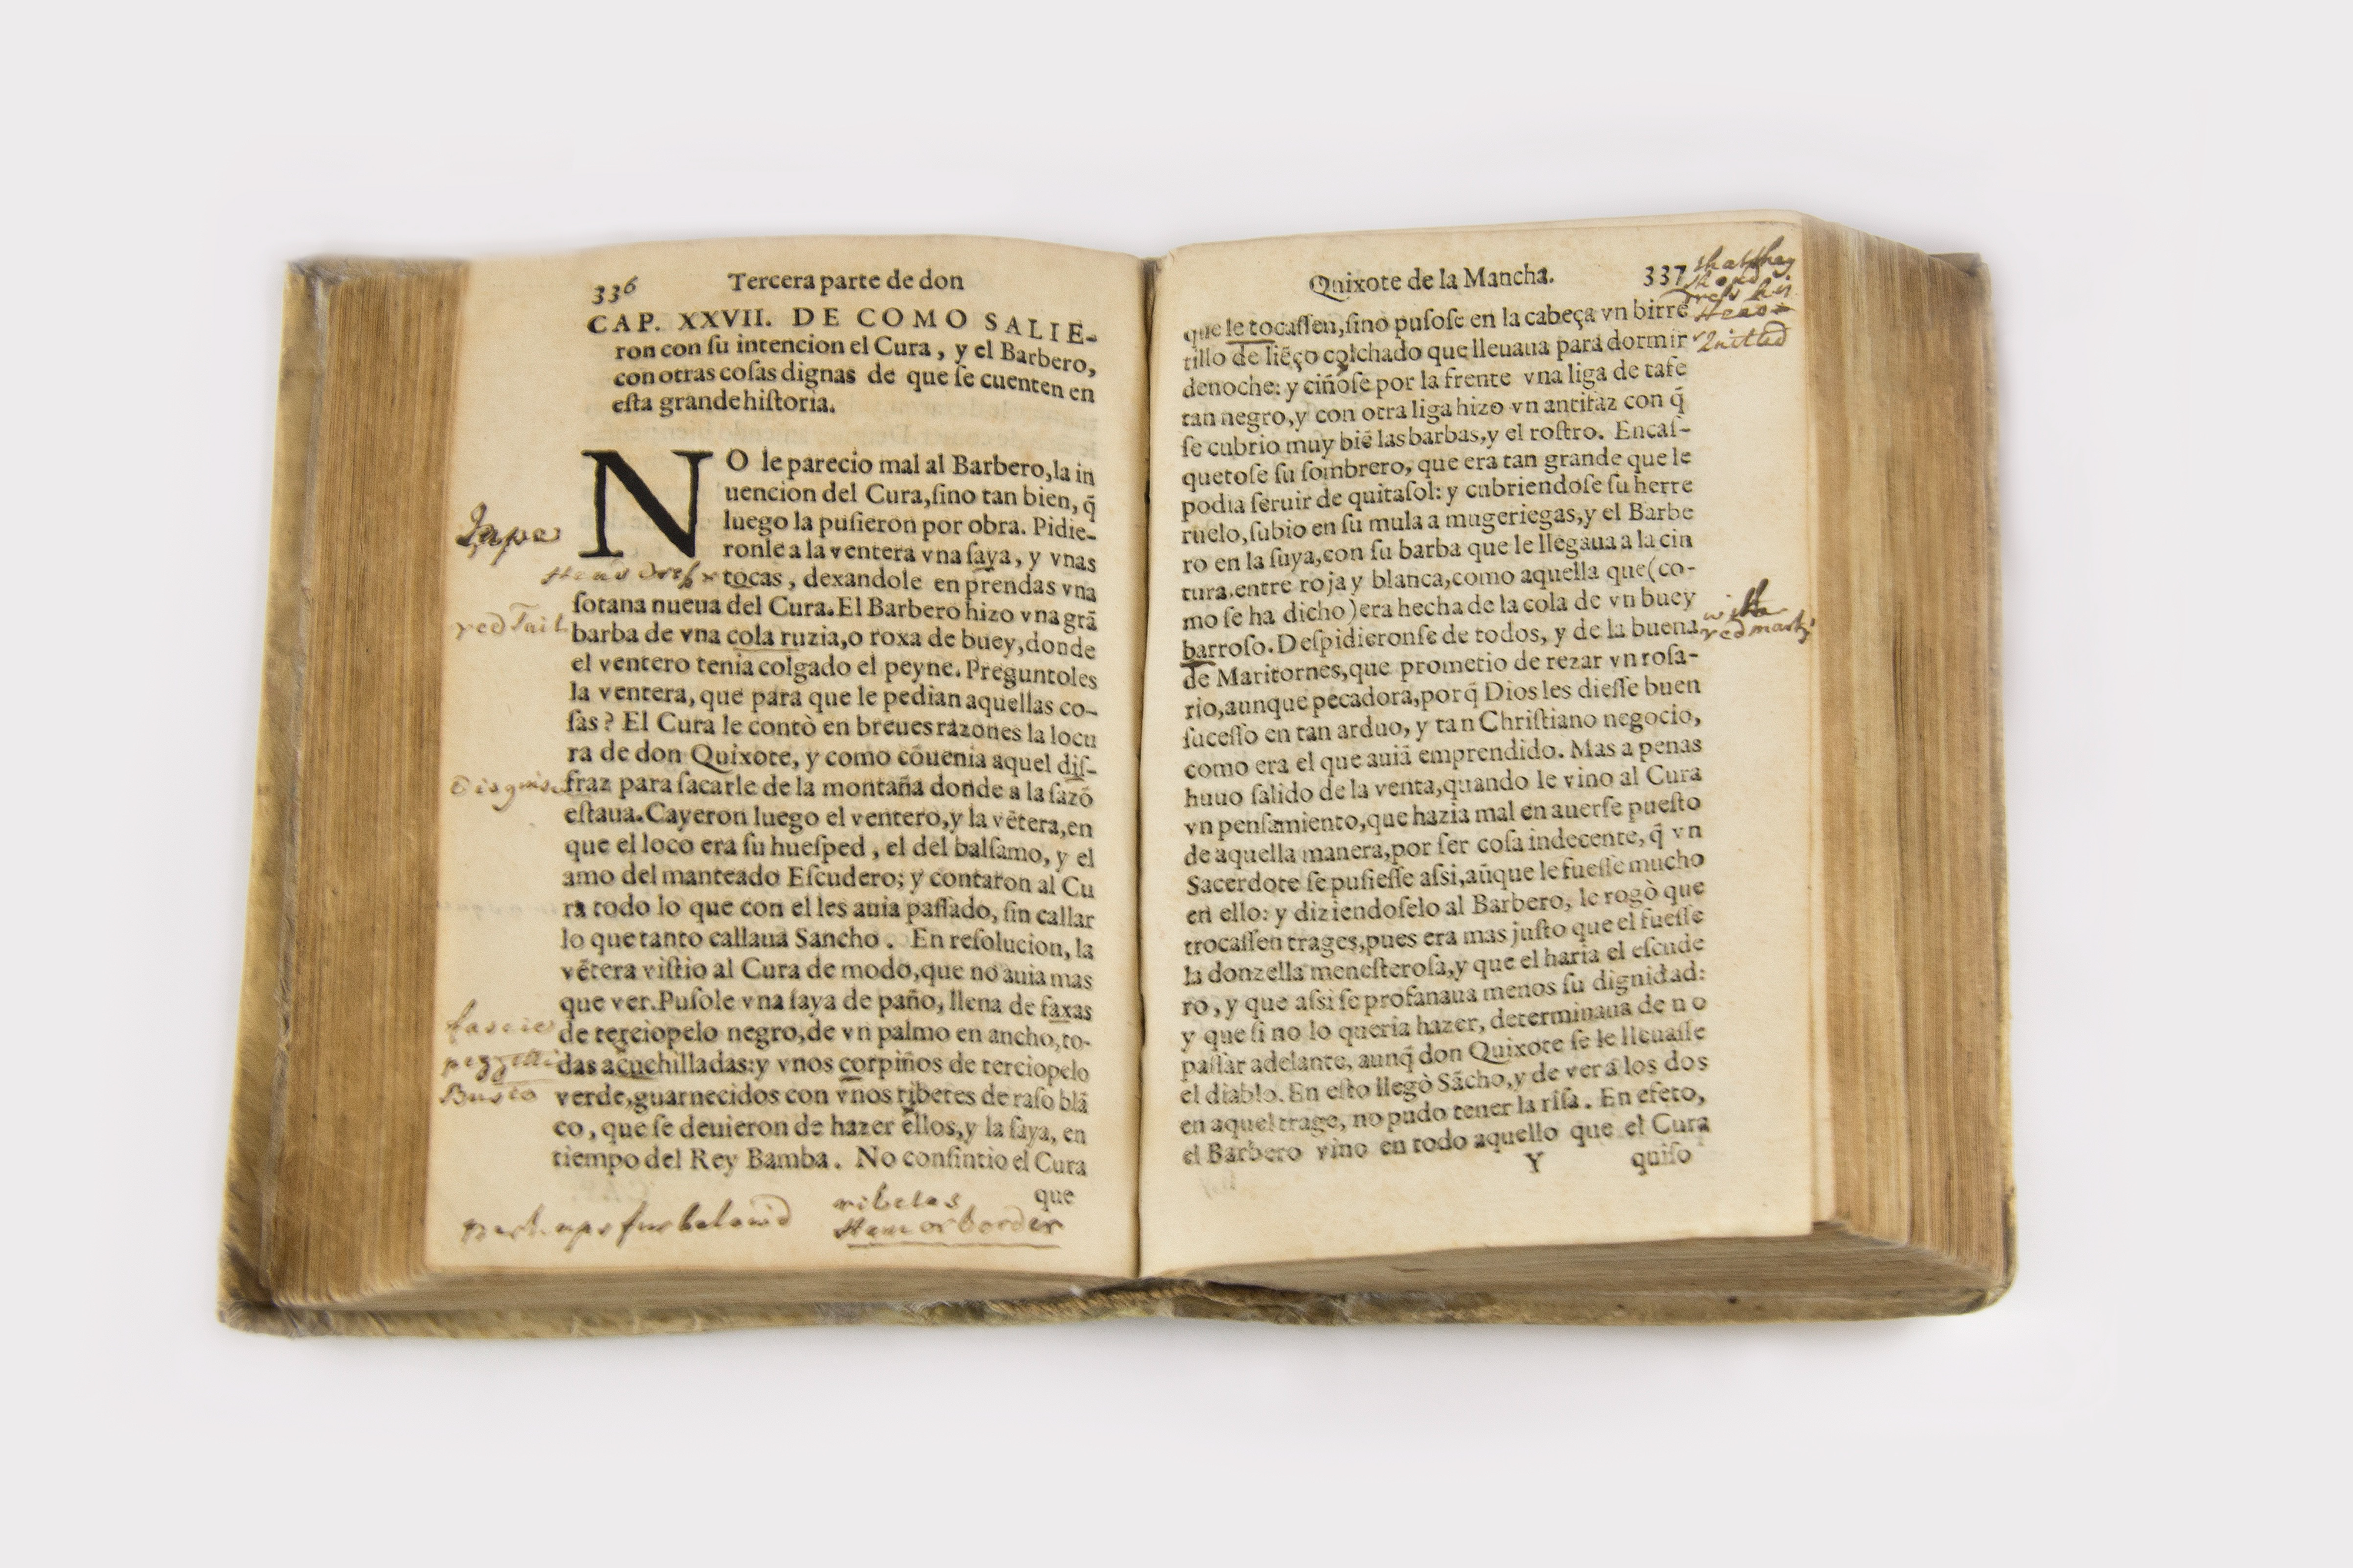 336 Tercera parte de don
CAP. XXVII. DE COMO SALIE-
ron con ſu intencion el Cura, y el Barbero,
con otras coſas dignas de que ſe cuenten en
eſta grande hiſtoria.
NO le parecio mal al Barbero, la in
uencion del Cura, ſino tan bien, q̃
luego la puſieron por obra. Pidie-
ronle a la ventera vna ſaya, y vnas
tocas, dexandole en prendas vna
ſotana nueua del Cura. El Barbero hizo vna grã
barba de vna cola ruzia, o roxa de buey, donde
el ventero tenia colgado el peyne. Preguntoles
la ventera, que para que le pedian aquellas co-
ſas? El Cura le contò en breues razones la locu
ra de don Quixote, y como cõuenia aquel diſ-
fraz para ſacarle de la montaña donde a la ſazõ
eſtaua. Cayeron luego el ventero, y la vẽtera, en
que el loco era ſu hueſped, el del balſamo, y el
amo del manteado Eſcudero; y contaron al Cu
ra todo lo que con el les auia paſſado, ſin callar
lo que tanto callaua Sancho. En reſolucion, la
vẽtera viſtio al Cura de modo, que no auia mas
que ver. Puſole vna ſaya de paño, llena de faxas
de terciopelo negro, de vn palmo en ancho, to-
das acuchilladas: y vnos corpiños de terciopelo
verde, guarnecidos con vnos ribetes de raſo blã
co, que ſe deuieron de hazer ellos, y la ſaya, en
tiempo del Rey Bamba. No conſintio el Cura
que
Jape
Head dreſs
red Tail
Disguise
fascie
pezzetti
Busto
perhaps furbelow'd
ribetes
Hem or border
Quixote de la Mancha. 337
que le tocaſſen, ſino puſoſe en la cabeça vn birre
tillo de liẽço colchado que lleuaua para dormir
denoche: y ciñoſe por la frente vna liga de tafe
tan negro, y con otra liga hizo vn antifaz con q̃
ſe cubrio muy biẽ las barbas, y el roſtro. Encaſ-
quetoſe ſu ſombrero, que era tan grande que le
podia ſeruir de quitaſol: y cubriendoſe ſu herre
ruelo, ſubio en ſu mula a mugeriegas, y el Barbe
ro en la ſuya, con ſu barba que le llegaua a la cin
tura, entre roja y blanca, como aquella que (co-
mo ſe ha dicho) era hecha de la cola de vn buey
barroſo. Deſpidieronſe de todos, y de la buena
de Maritornes, que prometio de rezar vn roſa-
rio, aunque pecadora, porq̃ Dios les dieſſe buen
ſuceſſo en tan arduo, y tan Chriſtiano negocio,
como era el que auiã emprendido. Mas a penas
huuo ſalido de la venta, quando le vino al Cura
vn penſamiento, que hazia mal en auerſe pueſto
de aquella manera, por ſer coſa indecente, q̃ vn
Sacerdote ſe puſieſſe aſsi, aũque le fueſſe mucho
en ello: y diziendoſelo al Barbero, le rogò que
trocaſſen trages, pues era mas juſto que el fueſſe
la donzella meneſteroſa, y que el haria el eſcude
ro, y que aſsi ſe profanaua menos ſu dignidad:
y que ſi no lo queria hazer, determinaua de no
paſſar adelante, aunq̃ don Quixote ſe le lleuaſſe
el diablo. En eſto llegò Sãcho, y de ver a los dos
en aquel trage, no pudo tener la riſa. En efeto,
el Barbero vino en todo aquello que el Cura
Y quiſo
that they
should
dreſs his
Head
Quilted
with
red marks